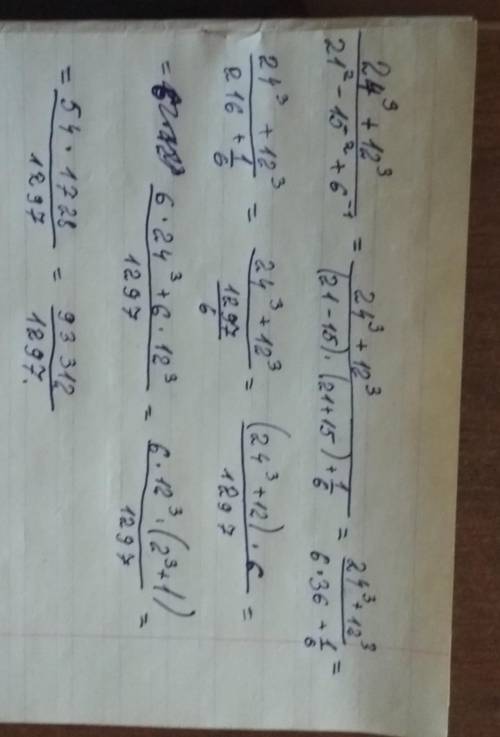 (24³ + 12³)/(21² - 15² + 6⁻¹) = (24³ + 12³)/((21 - 15) · (21 + 15) + 1/6) = (24³ + 12³)/(6 · 36 + 1/6) =
(24³ + 12³)/(216 + 1/6) = (24³ + 12³)/(1297/6) = ((24³ + 12) · 6)/1297 =
= (6 · 24³ + 6 · 12³)/1297 = (6 · 12³ · (2³ + 1))/1297 =
= (54 · 1728)/1297 = 93312/1297.